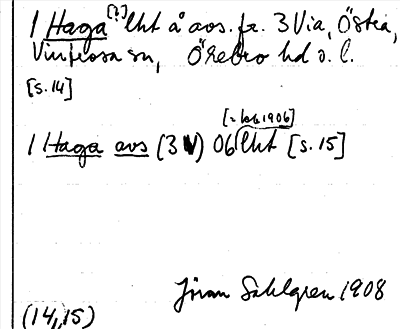 1 Haga [?] lht å avs. fr. 3 Via, Östra,
Vintrosa sn, Örebro hd o. l.
[s. 14]
[: 1906]
1 Haga avs (3 V) 06 lht [s. 15]
Jöran Sahlgren 1908
(14, 15)